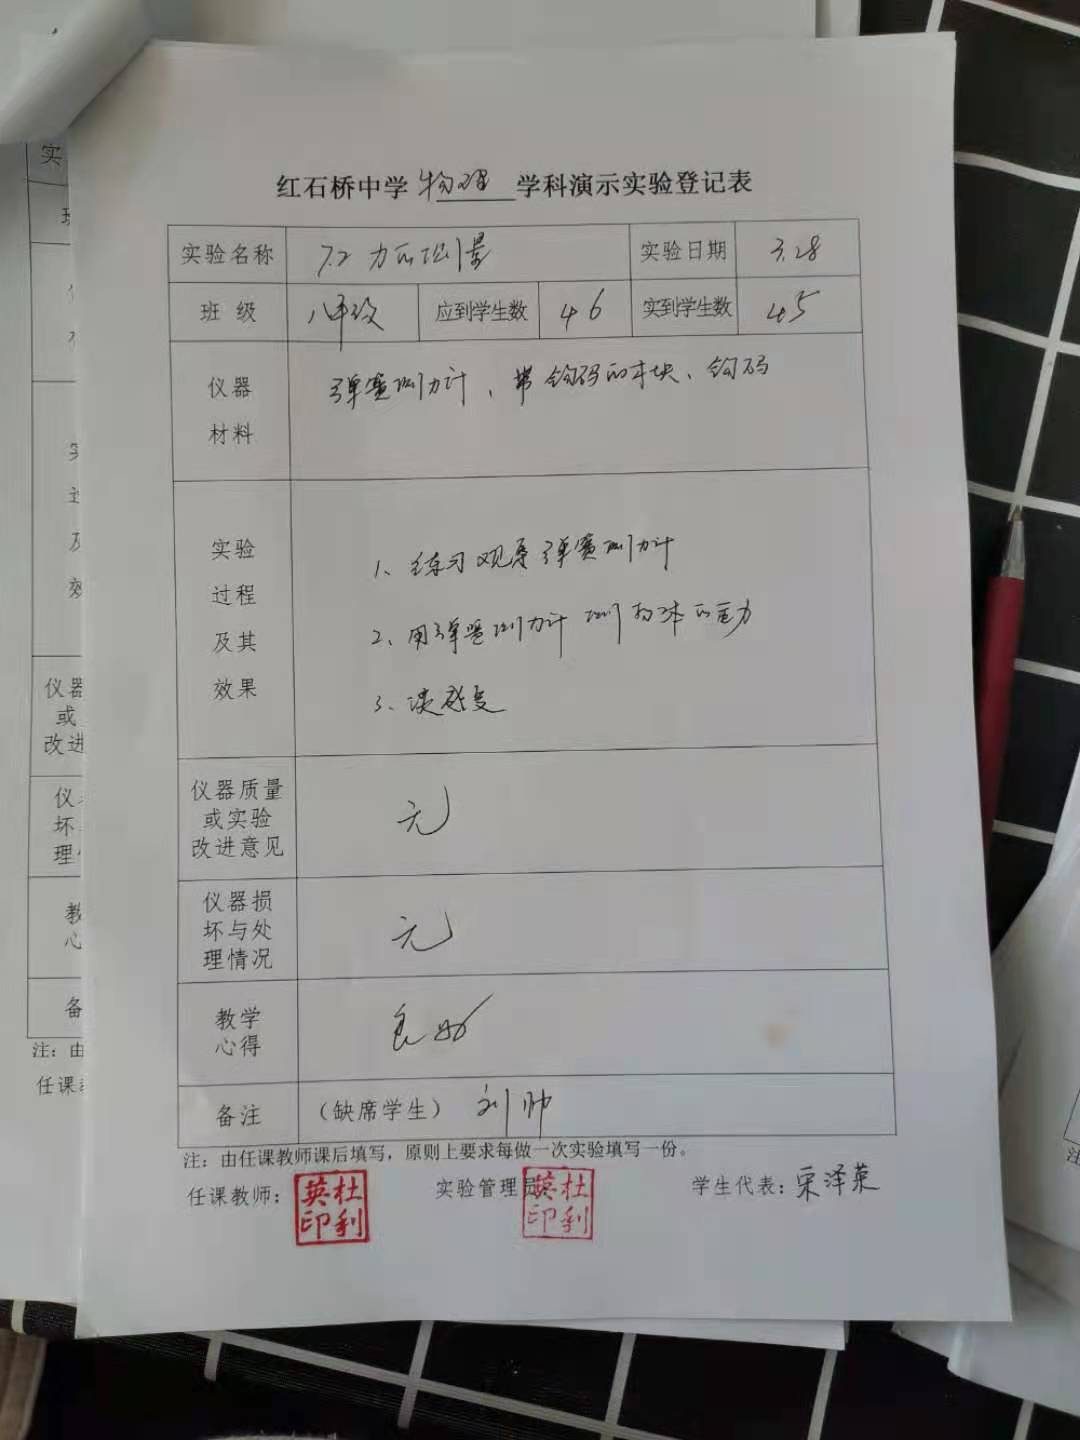 红石桥中学 物理 学科演示实验登记表
实验名称 7.2 力的测量 实验日期 3.28
班 级 八年级 应到学生数 46 实到学生数 45
仪器
材料
弹簧测力计、带钩码的木块、钩码
实验
过程
及其
效果
1、练习观察弹簧测力计
2、用弹簧测力计测物体的重力
3、谈感受
仪器质量
或实验
改进意见
无
仪器损
坏与处
理情况
无
教学
心得
良好
备注 （缺席学生） 刘帅
注：由任课教师课后填写，原则上要求每做一次实验填写一份。
任课教师： 杜利英印 实验管理员 杜利英印 学生代表：宋泽英
实
仪器
或
改进
仪
坏
理
教
心
备
注：由
任课